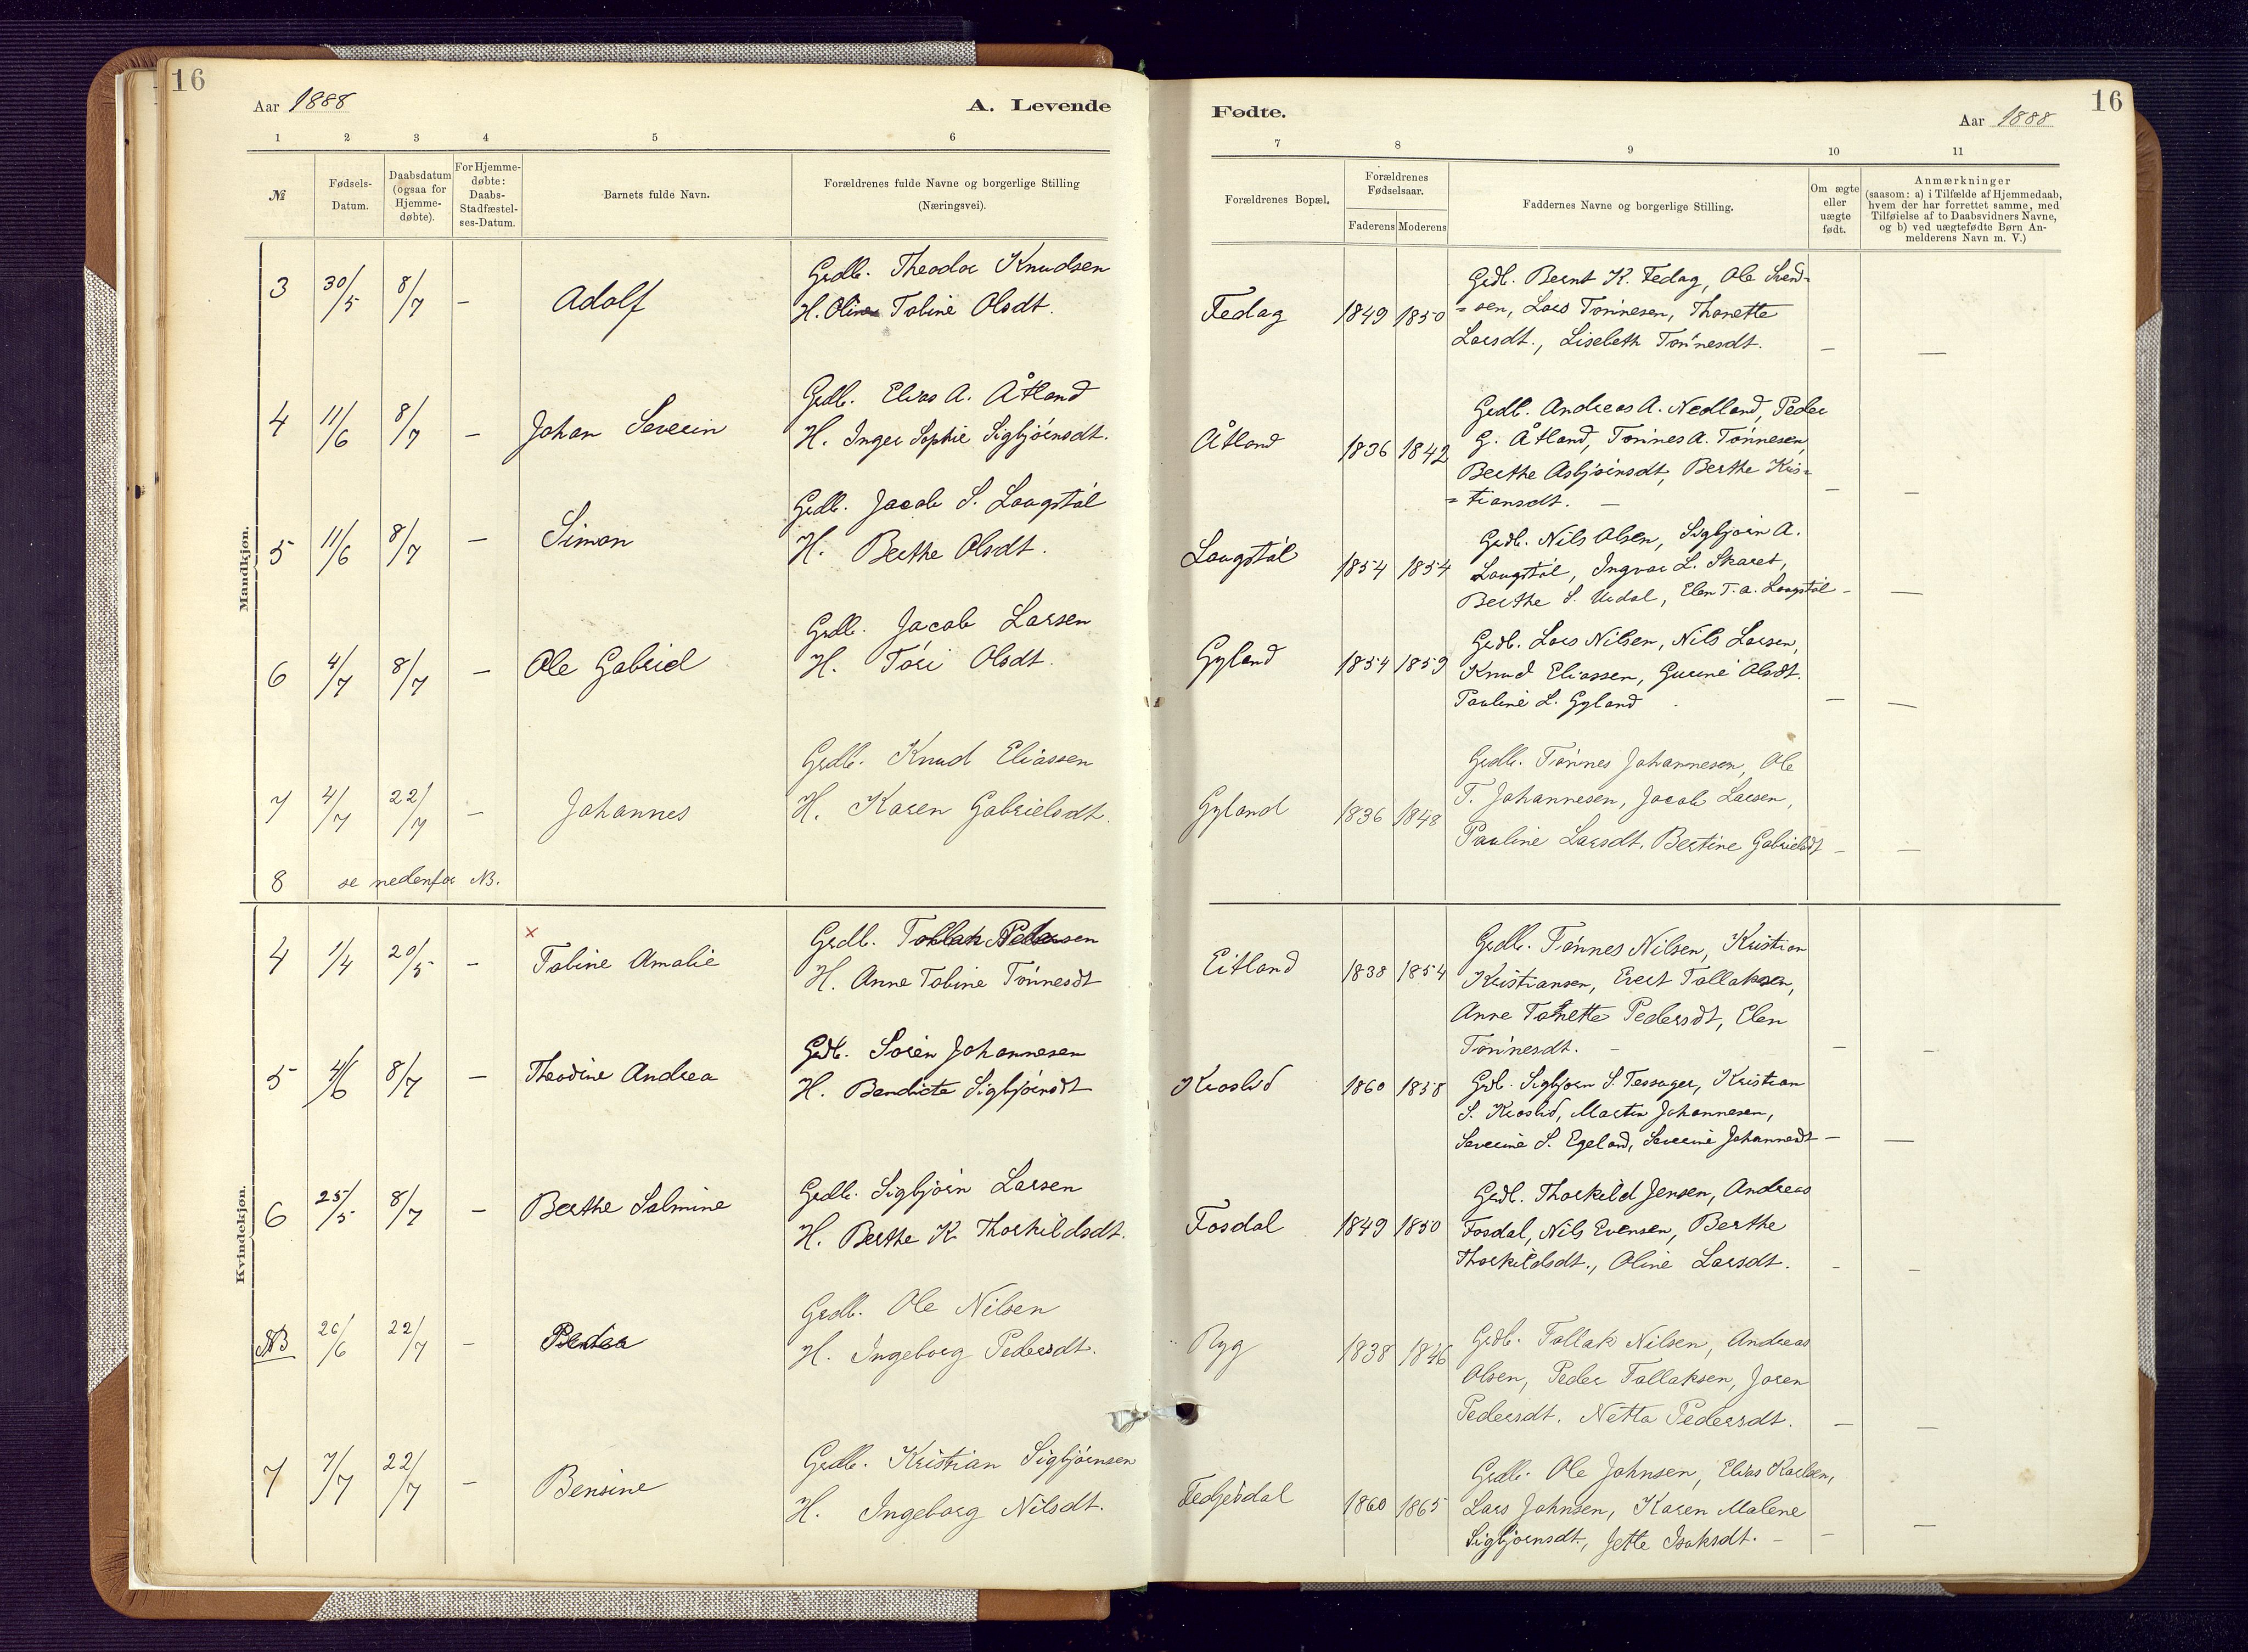 16
Aar 1888
A. Levende
1 2 3 4 5 6
№
Fødsels-Datum.
Daabsdatum (ogsaa for Hjemme-døbte).
For Hjemme-døbte: Daabs-Stadfæstel-ses-Datum.
Barnets fulde Navn.
Forældrenes fulde Navne og borgerlige Stilling
(Næringsvei).
Mandkjøn.
3 30/5 8/7 – Adolf
Grdb. Theodor Knudsen
H. Oline Tobine Olsdt.
4 11/6 8/7 – Johan Severin
Grdb. Elias A. Åtland
H. Inger Sophie Sigbjørnsdt.
5 11/6 8/7 – Simon
Grdb. Jacob S. Laugstøl
H. Berthe Olsdt.
6 4/7 8/7 – Ole Gabriel
Grdb. Jacob Larsen
H. Tóri Olsdt.
7 4/7 22/7 – Johannes
Grdb. Knud Eliassen
H. Karen Gabrielsdt.
8 se nedenfor NB.
Kvindekjøn.
4 1/4 20/5 – Tobine Amalie
Grdb. Tollak Pedersen
H. Anne Tobine Tønnesdt
5 4/6 8/7 – Theodine Andrea
Grdb. Sørèn Johannesen
H. Bendicte Sigbjørnsdt
6 25/5 8/7 – Berthe Salmine
Grdb. Sigbjørn Larsen
H. Berthe K. Thorkildsdt.
NB 26/6 22/7 – Peder
Grdb. Ole Nilsen
H. Ingeborg Pedersdt.
7 7/7 22/7 – Bensine
Grdb. Kristian Sigbjørnsen
H. Ingeborg Nilsdt.
Fødte.
Aar 1888
16
7 8 9 10 11
Forældrenes Bopæl.
Forældrenes Fødselsaar.
Faderens Moderens
Faddernes Navne og borgerlige Stilling.
Om ægte eller uægte født.
Anmærkninger
(saasom: a) i Tilfælde af Hjemmedaab,
hvem der har forrettet samme, med
Tilføielse af to Daabsvidners Navne,
og b) ved uægtefødte Børn An-
melderens Navn m. V.)
Fedag 1849 1850
Grdb. Bernt K. Fedag, Ole Svend-
=sen, Lars Tønnesen, Thonette
Larsdt., Lisebeth Tønnesdt. – –
Åtland 1836 1842
Grdb. Andreas A. Nedland, Peder
G. Åtland, Tønnes A. Tønnesen,
Berthe Asbjørnsdt, Berthe Kris=
=tiansdt. – – –
Laugstøl 1854 1854
Grdb. Nils Olsen, Sigbjørn A.
Laugstøl, Ingvar L. Skaret,
Berthe S. Urdal, Elen T. a. Laugstøl – –
Gyland 1854 1859
Grdb. Lars Nilsen, Nils Larsen,
Knud Eliassen, Gurine Olsdt.
Pauline L. Gyland – –
Gyland 1836 1848
Grdb. Tønnes Johannesen, Ole
T. Johannesen, Jacob Larsen,
Pauline Larsdt. Bertine Gabrielsdt – –
Eitland 1838 1854
Grdb. Tønnes Nilsen, Kristian
Kristiansen, Evert Tollaksen,
Anne Tonette Pedersdt, Elen
Tønnesdt. – – –
Kroslid 1860 1858
Grdb. Sigbjørn S. Tessager, Kristian
S. Kroslid, Martin Johannesen,
Severine S. Egeland, Severine Johannesdt – –
Fosdal 1849 1850
Grdb. Thorkild Jensen, Andreas
Fosdal, Nils Evensen, Berthe
Thorkildsdt., Oline Larsdt. – –
Ryg 1838 1846
Grdb. Tollak Nilsen, Andreas
Olsen, Peder Tollaksen, Joren
Pedersdt. Netta Pedersdt. – –
Fedjedal 1860 1865
Grdb. Ole Johnsen, Elias Karlsen,
Lars Johnsen, Karen Malene
Sigbjørnsdt., Jette Isaksdt. – – –